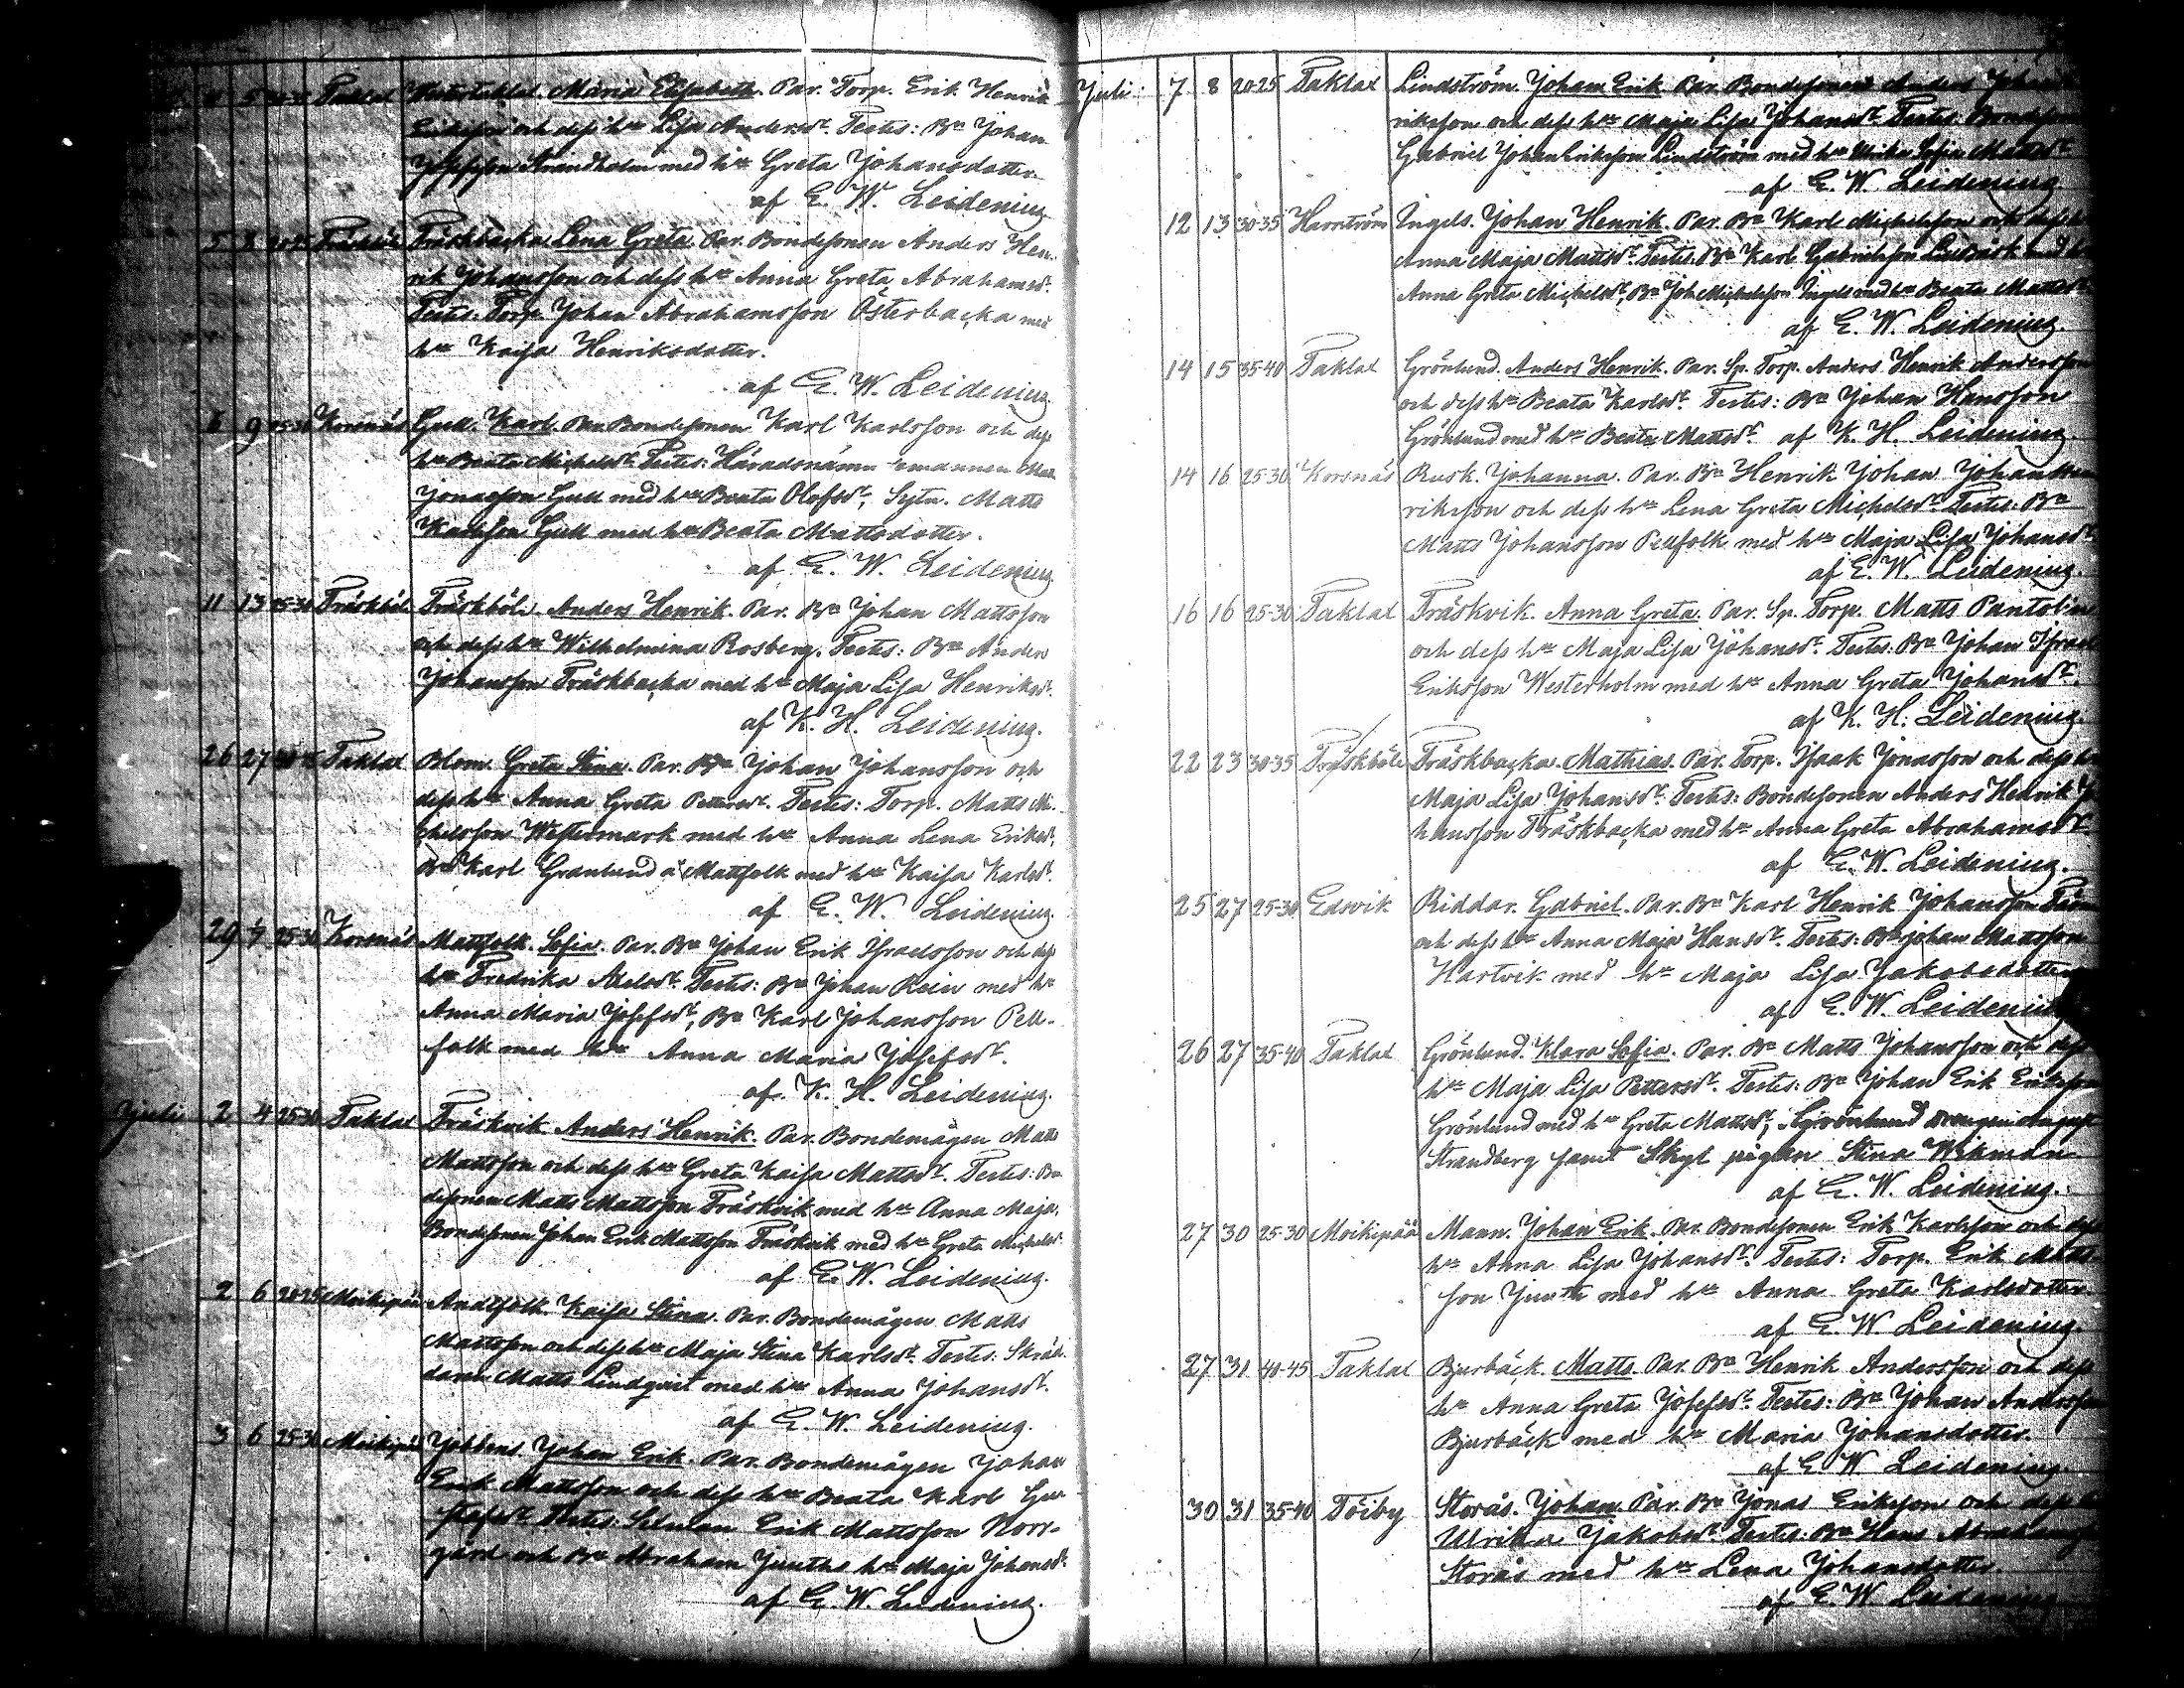 4 5 Taklax Maria Elisabeth. Par. Torp. Erik Henrik
Eriksson och dess hu Lisa Andersdr. Testes: Bn Johan
Josefsson Strandholm med hu Greta Johansdotter.
af E. W. Leidenius
5 8 Träskböle Träskbacka Lena Greta. Par. Bondesonen Anders Hen-
rik Johansson och dess hu Anna Greta Abrahamsdr.
Testes: Torp. Johan Abrahamsson Österbacka med
hu Kajsa Henriksdotter.
af E. W. Leidenius.
6 9 25-30 Korsnäs Gull. Karl. Par. Bondesonen Karl Karlsson och dess
hu Beata Michelsdr. Testes: Häradsnämndemannen Matts
Jonasson Gull med hu Beata Olofsdr, Sytn. Matts
Karlsson Gull med hu Beata Mattsdotter.
af E. W. Leidenius
11 13 25-30 Träskböle Träskböle Anders Henrik. Par. Bn Johan Mattsson
och dess hu Wilhelmina Rosberg. Testes: Bn Anders
Johansson Träskbacka med hu Maja Lisa Henriksdr.
af K. H. Leidenius.
26 27 Taklax Blom. Greta Stina. Par. Bn Johan Johansson och
dess hu Anna Greta Pettersdr. Testes: Torp. Matts Mi-
chelsson Westermark med hu Anna Lena Eriksdr,
Bn Karl Granlund a Mattfolk med hu Kaisa Karlsdr.
af E. W. Leidenius.
29 1/7 25-30 Korsnäs Mattfolk. Sofia. Par. Bn Johan Erik Israelsson och dess
hu Fredrika Axelsdr. Testes: Bn Johan Rein med hu
Anna Maria Josefsdr, Bn Karl Johansson Pell-
folk med hu Anna Maria Josefsdr.
af K. H. Leidenius.
Juli 2 4 25-30 Taklax Träskvik Anders Henrik. Par. Bondemågen Matts
Mattsson och dess hu Greta Kaisa Mattsdr. Testes: Bon
desonen Matts Mattsson Träskvik med hu Anna Maja,
Bondesonen Johan Erik Mattsson Träskvik med hu Greta Michelsdr.
af E. W. Leidenius.
2 6 20-25 Moikipää Andtfolk. Kaisa Stina. Par. Bondemågen Matts
Mattsson och dess hu Maja Stina Karlsdr. Testes: Skräd-
daren Matts Lindqvist med hu Anna Johansdr.
af E. W. Leidenius.
3 6 25-30 Moikipää Jobbens. Johan Erik. Par. Bondemågen Johan
Erik Mattsson och dess hu Beata Karl Gu-
stafsdr. Testes: Erik Mattsson Norr-
gård och Bn Abraham Juuths hu Maja Johansdr.
af E. W. Leidenius.
Juli 7 8 20-25 Taklax Lindström. Johan Erik. Par. Bondesonen Anders Johan
riksson och dess hu Maja Lisa Johansdr. Testes: Bondeson
Gabriel Johan Eriksson Lindström med hu Ulrika Sofia Mattsdr
af E. W. Leidenius.
12 13 30-35 Harrström Ingels. Johan Henrik. Par. Bn Karl Michelsson och dess hu
Anna Maja Mattsdr. Testes: Bn Karl Gabrielsson med hu
Anna Greta Michelsdr, Bn Joh. Michelsson Ingels med hu Beata Mattsdr
af E. W. Leidenius.
14 15 35-40 Taklax Grönlund. Anders Henrik. Par. Sp. Torp. Anders Henrik Andersson
och dess hu Beata Karlsdr. Testes: Bn Johan Hansson
Grönlund med hu Beata Mattsdr. af K. H. Leidenius.
14 16 25-30 Korsnäs Rusk. Johanna. Par. Bn Henrik Johan Johan Hen
riksson och dess hu Lena Greta Michelsdr. Testes: Bn
Matts Johansson Pellfolk med hu Maja Lisa Johansdr
af E. W. Leidenius.
16 16 25-30 Taklax Träskvik. Anna Greta. Par. Sp. Torp. Matts Pantolin
och dess hu Maja Lisa Johansdr. Testes: Bn Johan Israel
Eriksson Westerholm med hu Anna Greta Johansdr.
af K. H. Leidenius.
22 23 30-35 Träskböle Träskbacka. Mathias. Par. Torp. Isaak Jonasson och dess hu
Maja Lisa Johansdr. Testes: Bondesonen Anders Henrik Jo
hansson Träskbacka med hu Anna Greta Abrahamsdr
af E. W. Leidenius.
25 27 25-30 Edsvik Riddar. Gabriel. Par. Bn Karl Henrik Johansson
och dess hu Anna Maja Hansdr. Testes: Bn Johan Mattsson
Hartvik med hu Maja Lisa Jakobsdotter
af E. W. Leidenius
26 27 35-40 Taklax Grönlund. Klara Sofia. Par. Bn Matts Johansson och dess
hu Maja Lisa Pettersdr. Testes: Bn Johan Erik Eriksson
Grönlund med hu Greta Mattsdr, drängen August
Strandberg samt pigan Stina Wikman
af E. W. Leidenius.
27 30 25-30 Moikipää Mann. Johan Erik. Par. Bondesonen Erik Karlsson och dess
hu Anna Lisa Johansdr. Testes: Torp. Erik Matts-
son Juuth med hu Anna Greta Karlsdotter
af E. W. Leidenius.
27 31 40-45 Taklax Bjurbäck. Matts. Par. Bn Henrik Andersson och dess
hu Anna Greta Josefsdr. Testes: Bn Johan Andersson
Bjurbäck med hu Maria Johansdotter.
af E. W. Leidenius.
30 31 35-40 Töjby Storås. Johan. Par. Bn Jonas Eriksson och dess hu
Ulrika Jakobsdr. Testes: Bn Hans Abrahamss
Storås med hu Lena Johansdotter
af E. W. Leidenius